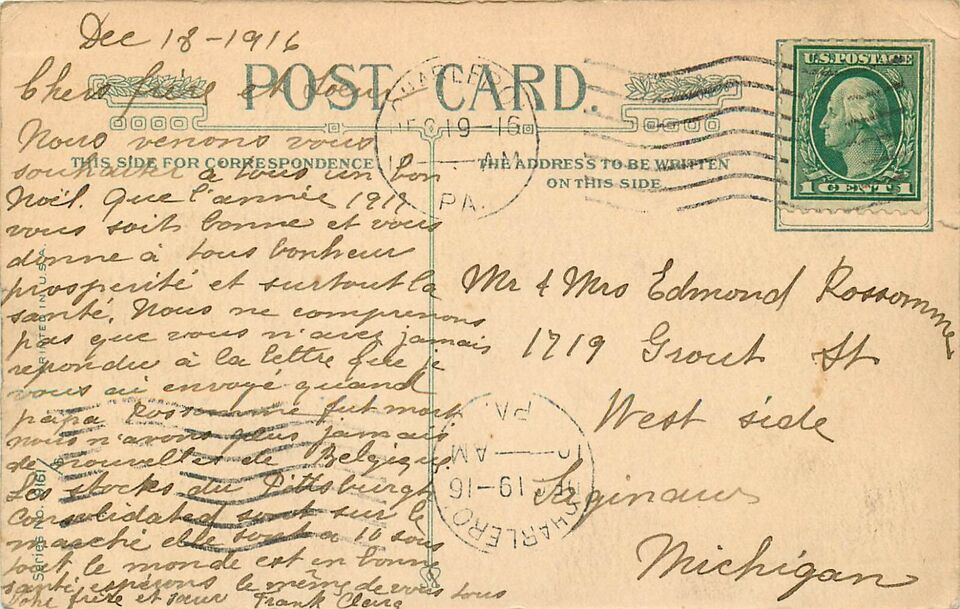 Dec 18-1916
POST CARD.
Chers frère et soeur
Nous venons vous
THIS SIDE FOR CORRESPONDENCE
souhaiter à tous un bon
Noël. Que l'année 1917
vous soit bonne et vous
donne à tous bonheur
prosperité et surtout la
santé. Nous ne comprenons
pas que vous n'avez jamais
repondu à la lettre que je
vous ai envoyé quand
papa Rossomme fut mort.
nous n'avons plus jamais
de nouvelles de Belgique.
Les stocks du Pittsburgh
Consolidated sont sur le
marché elle sont a 10 sous
tout le monde est en bonne
santé espérons le même de vous tous
Votre frère et soeur Frank Claire
THE ADDRESS TO BE WRITTEN
ON THIS SIDE
CHARLEROI
DEC 19-16
AM
PA.
U.S. POSTAGE
1 CENT 1
Mr & Mrs Edmond Rossomme
1719 Grout St
West side
Saginaw
Michigan
CHARLEROI
DEC 19-16
10 AM
PA.
PRINTED IN U.S.A.
Series No. 916